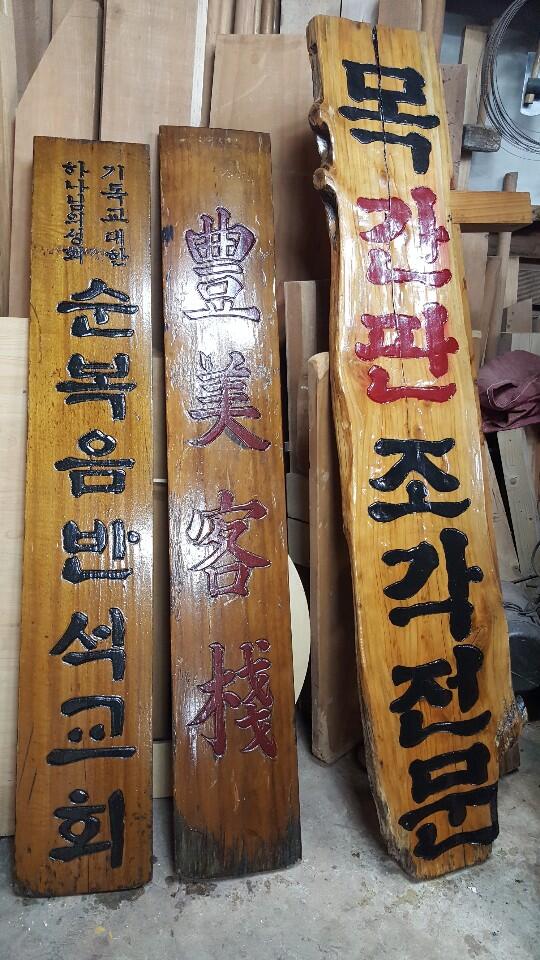 기독교 대한
하나님의성회
순복음반석교회
豊美客棧
목간판조각전문